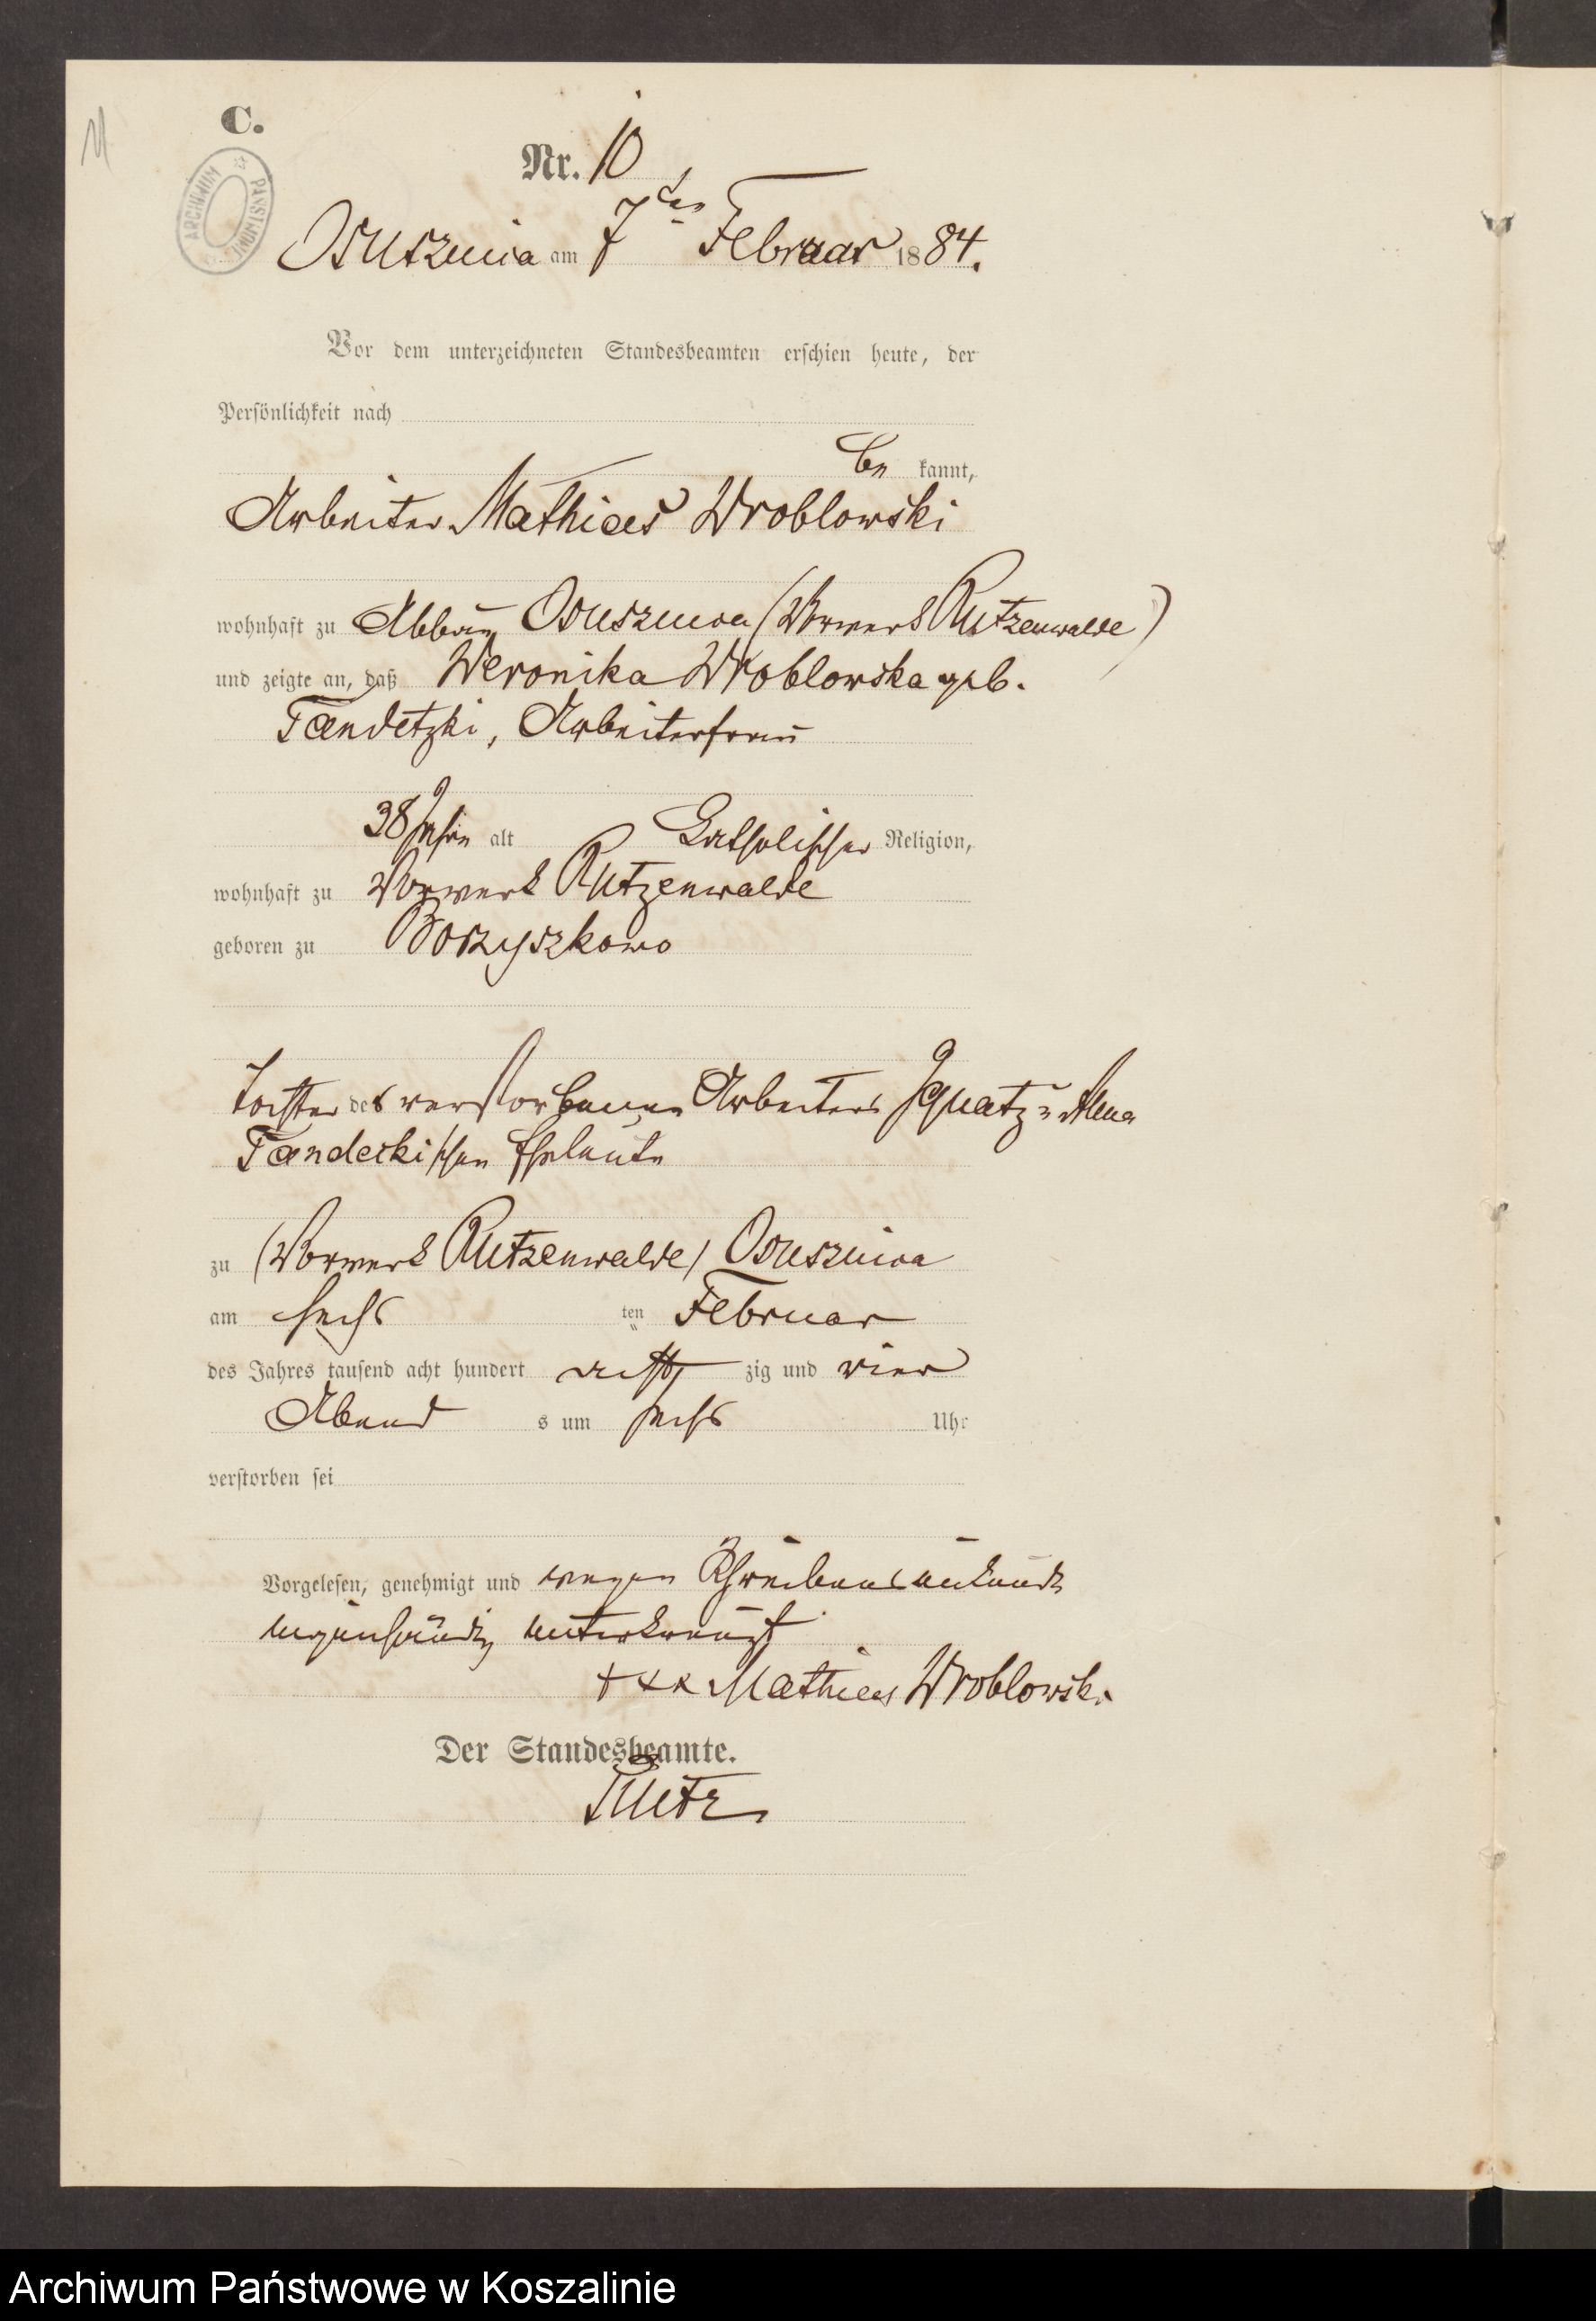 C.
11
ARCHIWUM PAŃSTWOWE
Nr. 10
Osusznica am 7ten Februar 1884.
Vor dem unterzeichneten Standesbeamten erschien heute, der
Persönlichkeit nach
be kannt,
Arbeiter Mathias Wroblowski
wohnhaft zu Abbau Osusznica (Vorwerk Rutzenwalde)
und zeigte an, daß Weronika Wroblowska geb.
Tandetzki, Arbeiterfrau
38 Jahre alt Katholischer Religion,
wohnhaft zu Vorwerk Rutzenwalde
geboren zu Borzyszkowo
Tochter des verstorbenen Arbeiters Ignatz u
Tandeckischen Eheleute
zu (Vorwerk Rutzenwalde) Osusznica
am sechs ten Februar
des Jahres tausend acht hundert acht zig und vier
Abend s um sechs Uhr
verstorben sei
Vorgelesen, genehmigt und wegen Schreibensunkunde
unterkreuzt
+++ Mathias Wroblowski
Der Standesbeamte.
Archiwum Państwowe w Koszalinie